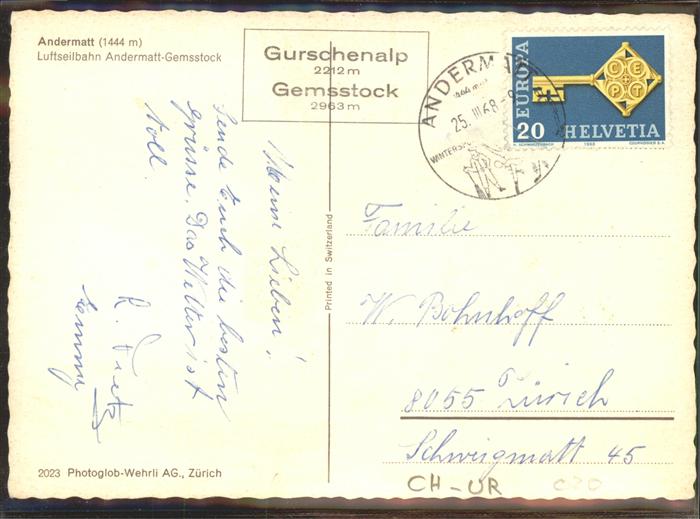 Andermatt (1444 m)
Luftseilbahn Andermatt-Gemsstock
Gurschenalp
2212 m
Gemsstock
2963 m
ANDERMATT
25. III 68 - 9
WINTERSP
EUROPA
CEPT
20 HELVETIA
1968 COURVOISIER S.A.
Meine Lieben!
Sende Euch die besten
Grüsse. Das Wetter ist
toll.
R. Dietz
Emmy
Printed in Switzerland
Familie
W. Bohnhoff
8055 Zürich
Schweigmatt 45
CH-UR
2023 Photoglob-Wehrli AG., Zürich